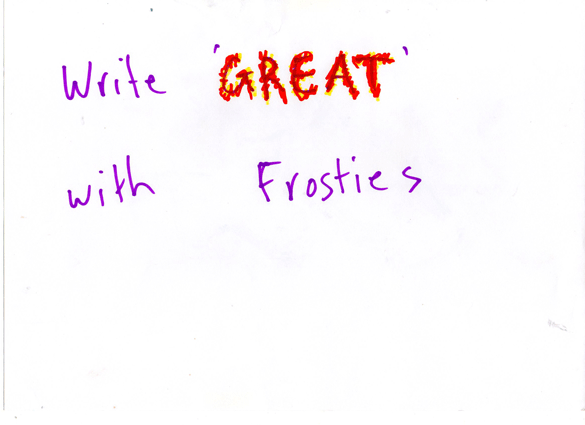 Write 'GREAT'
with Frosties